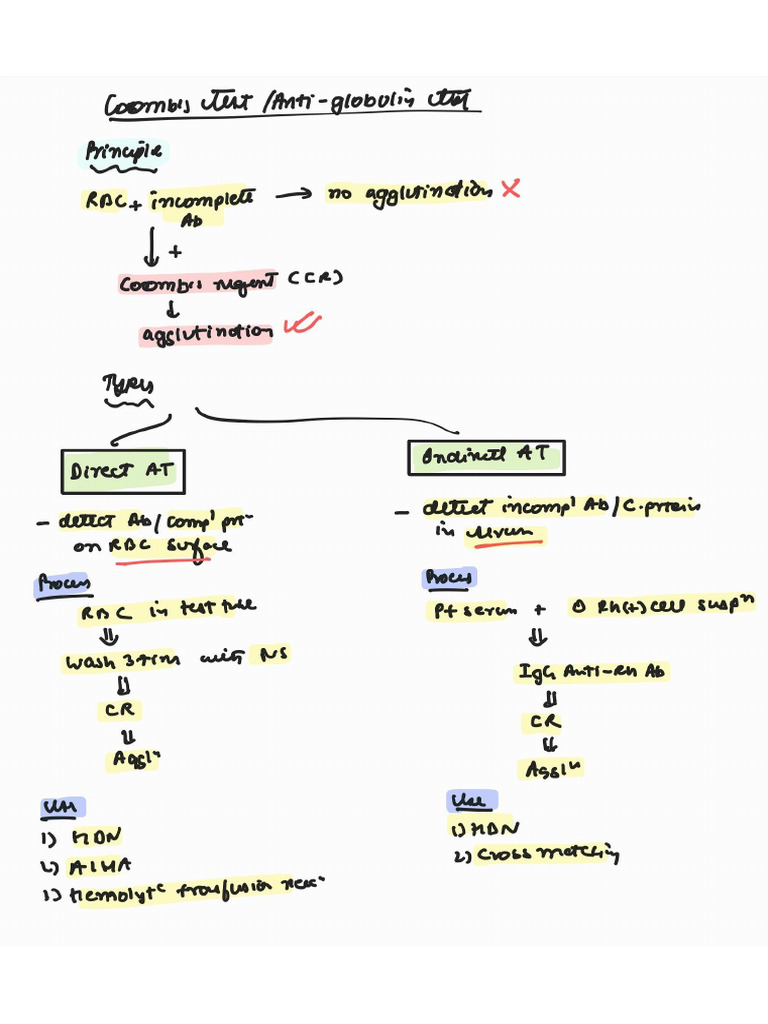 Coombis Test / Anti-globulin test
Principle
RBC + incomplete Ab → no agglutination ✗
↓ +
Coombis regent (CR)
↓
agglutination ✓
Types
Direct AT
- detect Ab / Comp' prt-
on RBC surface
Process
RBC in test tube
⇓
wash 3 times with NS
⇓
CR
⇓
Aggln
Uses
1) HDN
2) AIHA
3) Hemolytc transfusion reac-
Indirect AT
- detect incomp' Ab / C. protein
in serum
Process
Pt serum + O Rh(+) cell suspn
⇓
IgG Anti-Rh Ab
⇓
CR
⇓
Aggln
Use
1) HDN
2) Cross matching